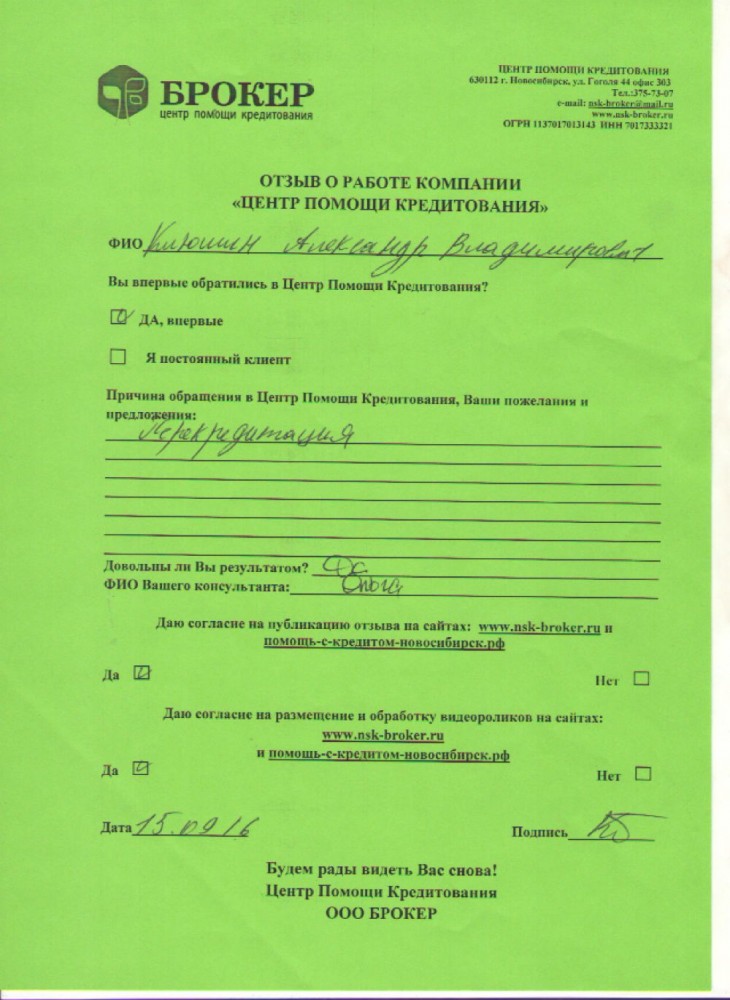 БРОКЕР
центр помощи кредитования
ЦЕНТР ПОМОЩИ КРЕДИТОВАНИЯ
630112 г. Новосибирск, ул. Гоголя 44 офис 303
Тел.:375-73-07
e-mail: nsk-broker@mail.ru
www.nsk-broker.ru
ОГРН 1137017013143 ИНН 7017333321
ОТЗЫВ О РАБОТЕ КОМПАНИИ
«ЦЕНТР ПОМОЩИ КРЕДИТОВАНИЯ»
ФИО Клюшин Александр Владимирович
Вы впервые обратились в Центр Помощи Кредитования?
ДА, впервые
Я постоянный клиент
Причина обращения в Центр Помощи Кредитования, Ваши пожелания и
предложения:
Перекредитация
Довольны ли Вы результатом? Да
ФИО Вашего консультанта: Ольга
Даю согласие на публикацию отзыва на сайтах: www.nsk-broker.ru и
помощь-с-кредитом-новосибирск.рф
Да Нет
Даю согласие на размещение и обработку видеороликов на сайтах:
www.nsk-broker.ru
и помощь-с-кредитом-новосибирск.рф
Да Нет
Дата 15.09 16 Подпись
Будем рады видеть Вас снова!
Центр Помощи Кредитования
ООО БРОКЕР